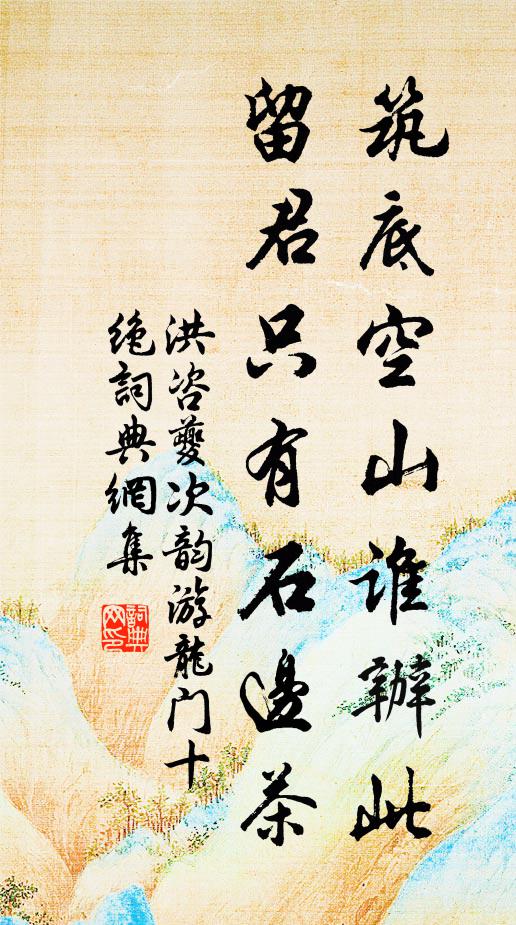 筑底空山谁辦此
留君只有石邊茶
洪咨夔次韵游龍门十
絶詞典網集
詞典
网印